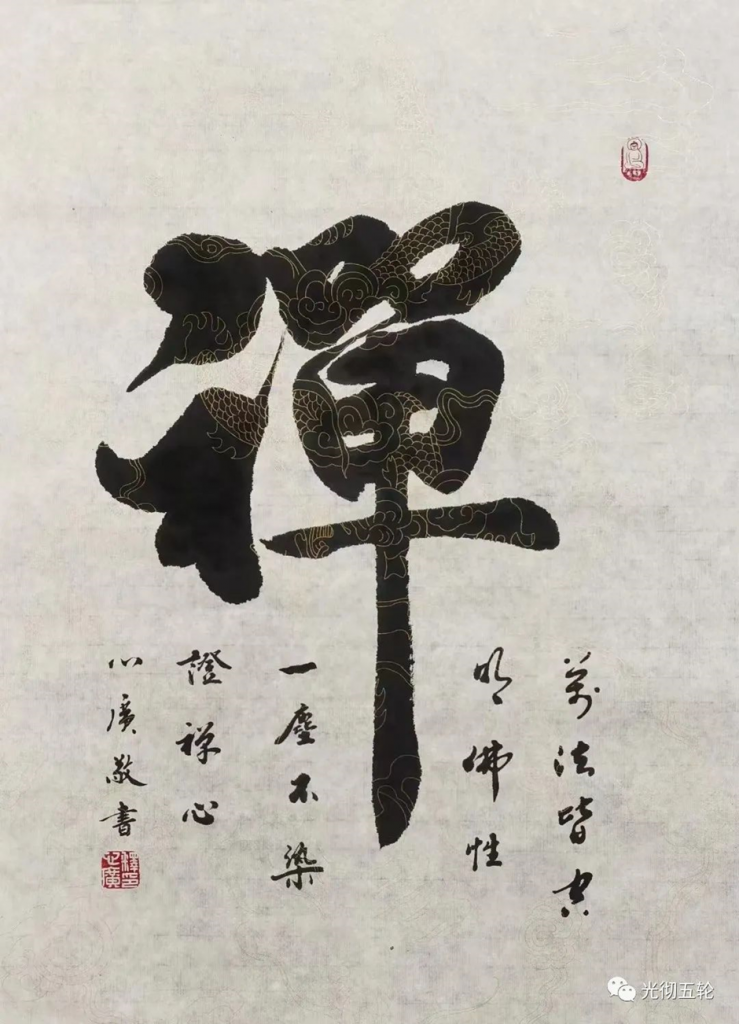 禪
萬法皆空
明佛性
一塵不染
證禅心
心廣敬書
釋心廣印
光彻五轮